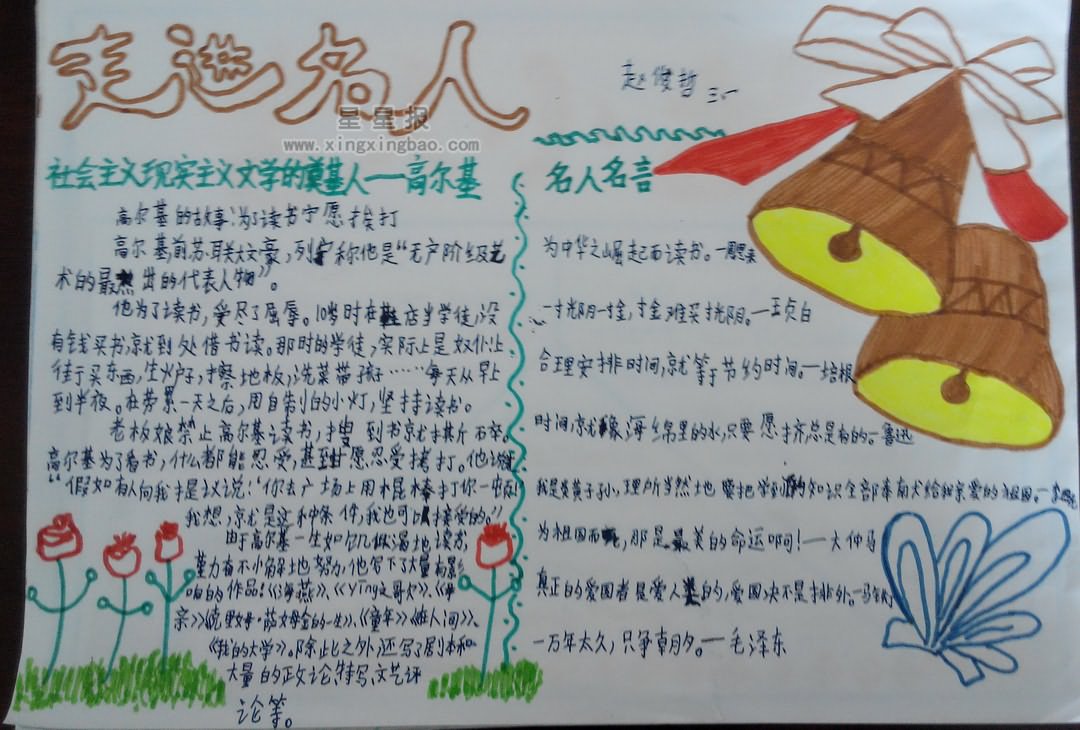 走进名人
赵俊哲 三、一
星星报
www.xingxingbao.com
社会主义现实主义文学的奠基人——高尔基
高尔基的故事:为了读书宁愿挨打
高尔基前苏联大文豪,列宁称他是“无产阶级艺
术的最杰出的代表人物”。
他为了读书,受尽了屈辱。10岁时在鞋店当学徒,没
有钱买书,就到处借书读。那时的学徒,实际上是奴仆:上
街买东西,生火炉子,擦地板,洗菜带孩子……每天从早上
到半夜。在劳累一天之后,用自制的小灯,坚持读书。
老板娘禁止高尔基读书,搜到书就撕碎。
高尔基为了看书,什么都能忍受,甚至甘愿忍受拷打。他说过
“假如有人向我提议说:‘你去广场上用棍棒打你一顿!’
我想,就是这种条件,我也可以接受的。”
由于高尔基一生如饥似渴地读书,
勤力有不小解地努力,他写下了大量有影
响的作品!《海燕》、《Ying之歌》、《母
亲》《克里姆·萨姆金的一生》、《童年》《在人间》、
《我的大学》。除此之外,还写了剧本和
大量的政论、特写、文艺评
论等。
名人名言
为中华之崛起而读书。—周恩来
一寸光阴一寸金,寸金难买寸光阴。—王贞白
合理安排时间,就等于节约时间。—培根
时间,就像海绵里的水,只要愿挤,总是有的。—鲁迅
我是炎黄子孙,理所当然地要把学到的知识全部奉献给我亲爱的祖国。—
为祖国而死,那是最美的命运啊!—大仲马
真正的爱国者是爱人类的,爱国决不是排外。—
一万年太久,只争朝夕。——毛泽东